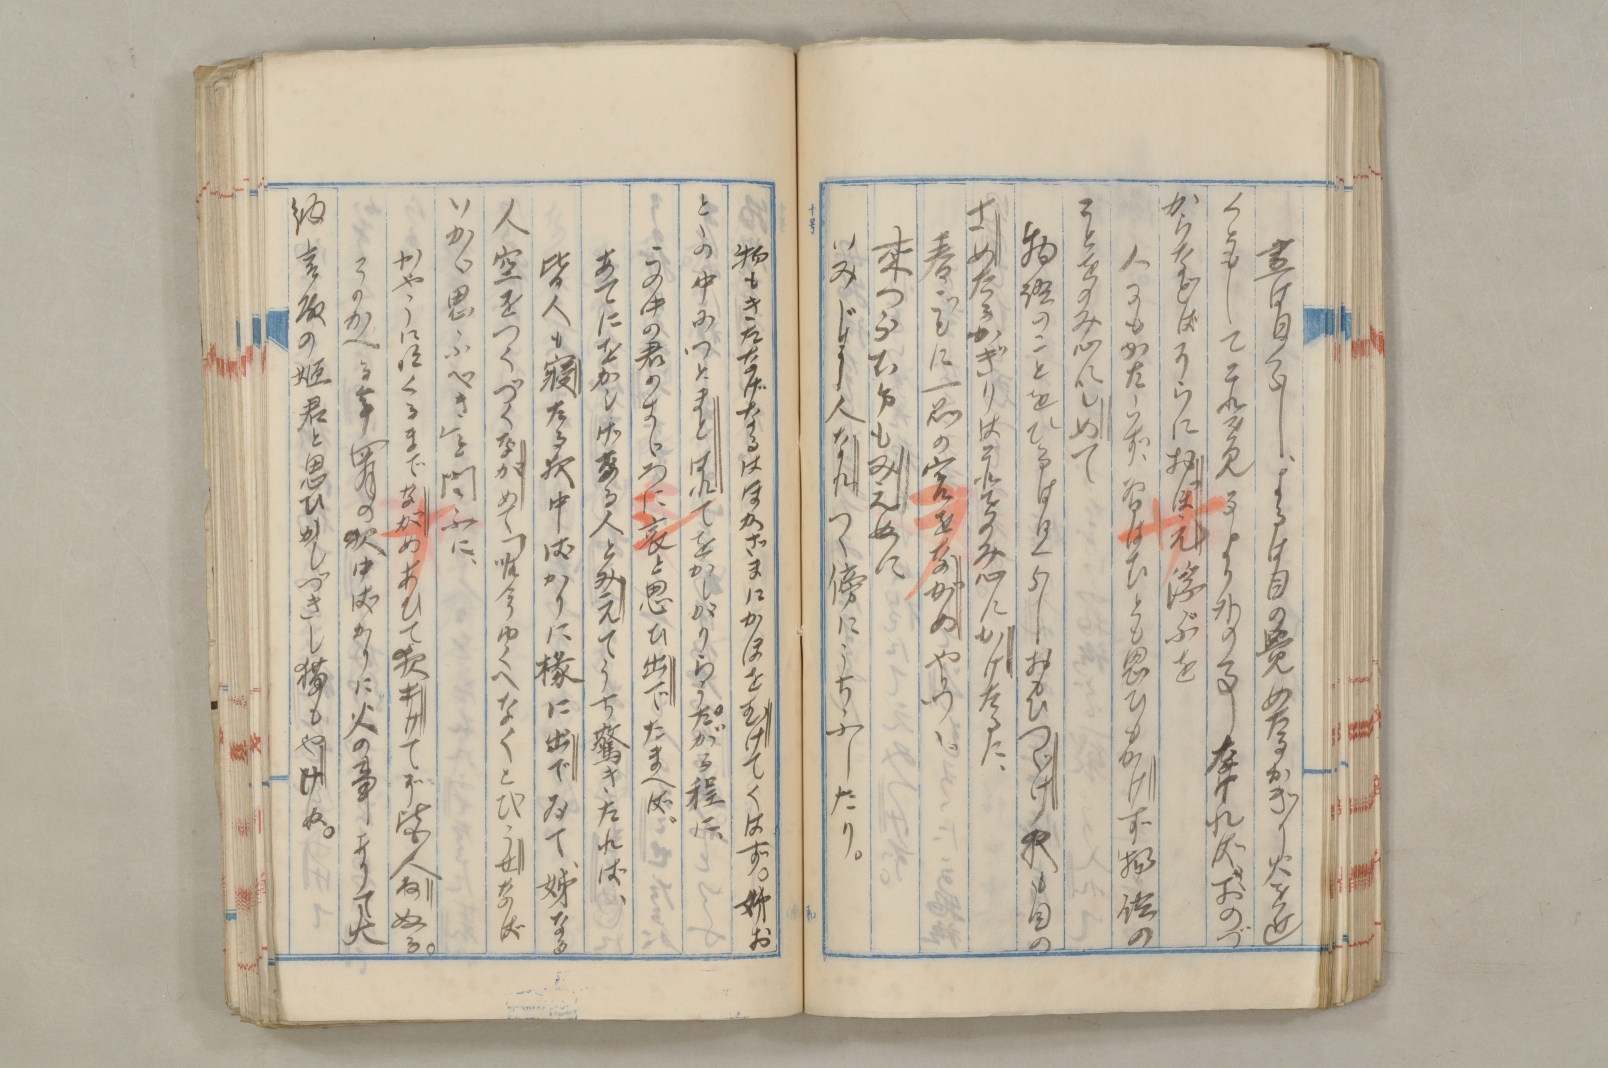 昼は日ぐらし、よるは目の覚めたるかぎり火を近
くともしてこれを見るより外の事しなければおのづ
からなどはそらにおぼえ浮ぶを
人にもかたらず、習はむとも思ひもかけず物語の
ことをのみ心にしめて
物語のことをひるは日ぐらしおもひつゞけ夜も目の
さめたるかぎりはこれをのみ心にかけたるに、
春ごとに一品の宮をながめやりつゝ
いみじう人なれつゝ傍にうちふしたり。
物もきたなげなるはほかざまにかほをむけてくはず。姉お
とゝの中につとまとはれてをかしがりらうたがる程に、
この中の君のすゞろに哀と思ひ出でたまへば、
あてにをかしげなる人とみえてうち驚きたれば、
皆人も寝たる夜中ばかりに椽に出でゐて、姉なる
人空をつくづくながめて「唯今ゆくへなくとびうせなば
いかゞ思ふべき」と問ふに、
かやうににくるまでながめあかいて夜あけてぞ皆人ねぬる。
そのかへる年四月の夜中ばかりに火の事ありて大
納言殿の姫君と思ひかしづきし猫もやけぬ。
十号